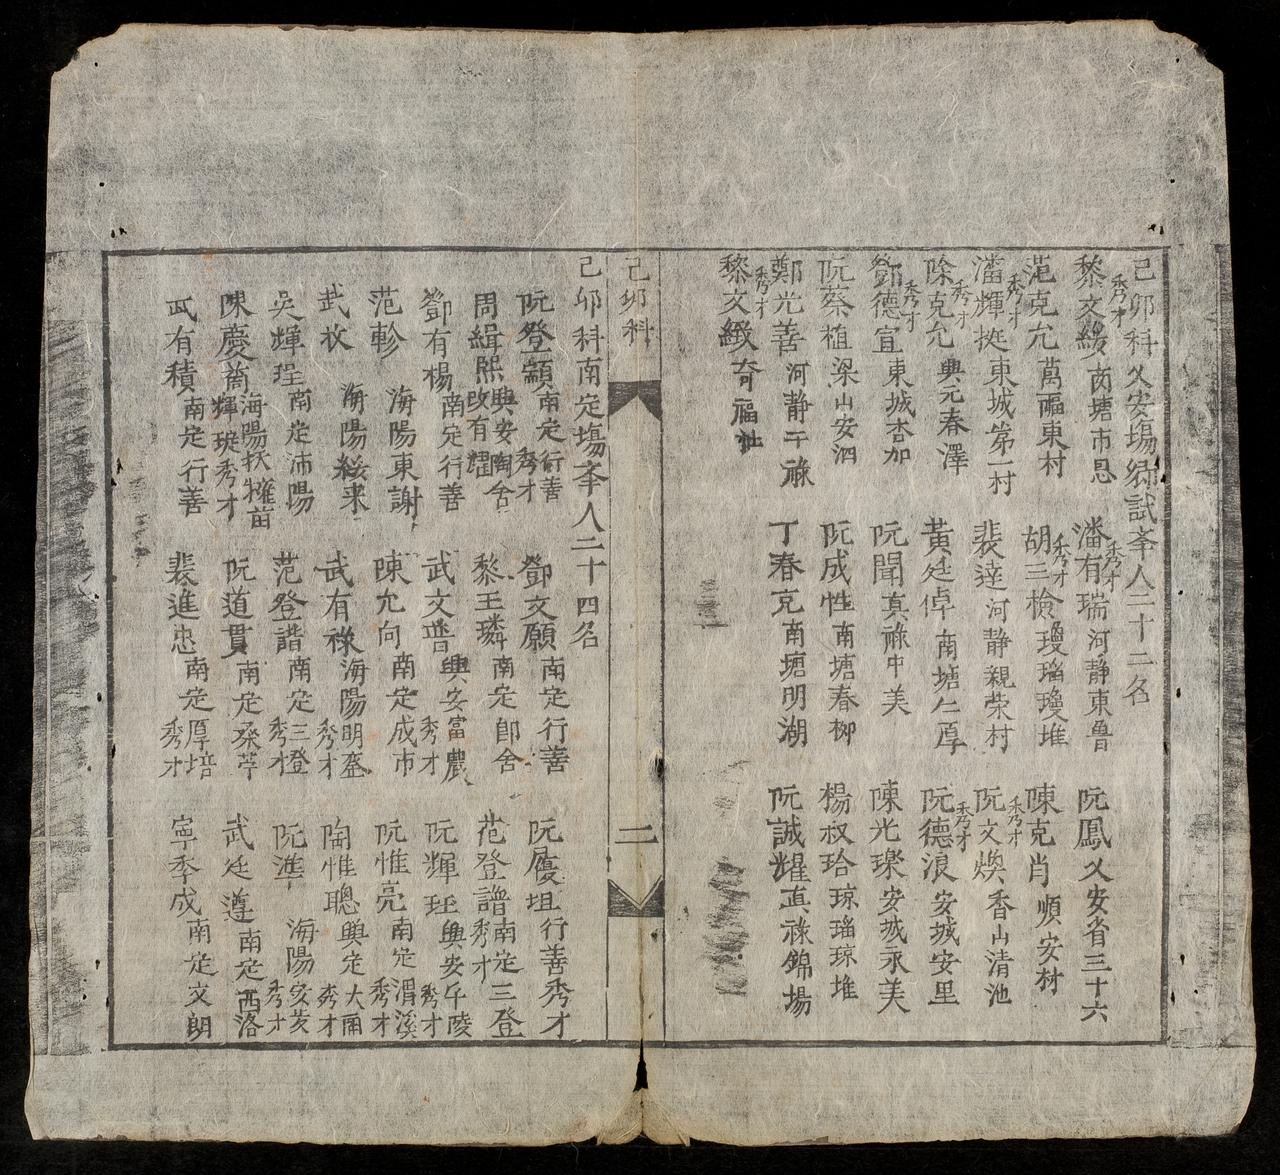 己卯科乂安塲鄉試夆人二十二名
黎文緩秀才茵塘市恳 潘有瑞秀才河静東魯 阮鳳乂安省三十六
范克允萬福東村 胡三檢秀才瓊瑠瓊堆 陳克肖順安村
潘輝挺秀才東城第一村 裴達河静親荣村 阮文煥秀才香山清池
除克允秀才興元春澤 黃廷倬南塘仁厚 阮德浪秀才安城安里
鄧德宣秀才東城杏加 阮聞真祿中美 陳光璨安城永美
阮蔡植梁山安泗 阮成性南塘春柳 楊叔珨琼瑠琼堆
鄭光善河静干祿 丁春克南塘明湖 阮誠耀真祿錦場
黎文緻秀才奇福
己卯科
二
己卯科南定塲夆人二十四名
阮登顜南定行善秀才 鄧文願南定行善 阮慶坦行善秀才
周緝熙興安陶舍改有耀 黎王璘南定即舍 范登譜南定三登秀才
鄧有楊南定行善 武文普興安富農秀才 阮輝珏興安午陵秀才
范軫海陽東謝 陳允向南定成市 阮惟亮南定渭溪秀才
武枚海陽綏来 武有祿海陽明登秀才 陶惟聰興定大甫秀才
吳輝珵南定沛陽 范登諧南定三登秀才 阮準海陽安茭秀才
陳慶海陽扶擁苗輝珽秀才 阮道貫南定桑苹 武廷遵南定西洛
武有積南定行善 裴進忠南定厚培秀才 寧季成南定文朗